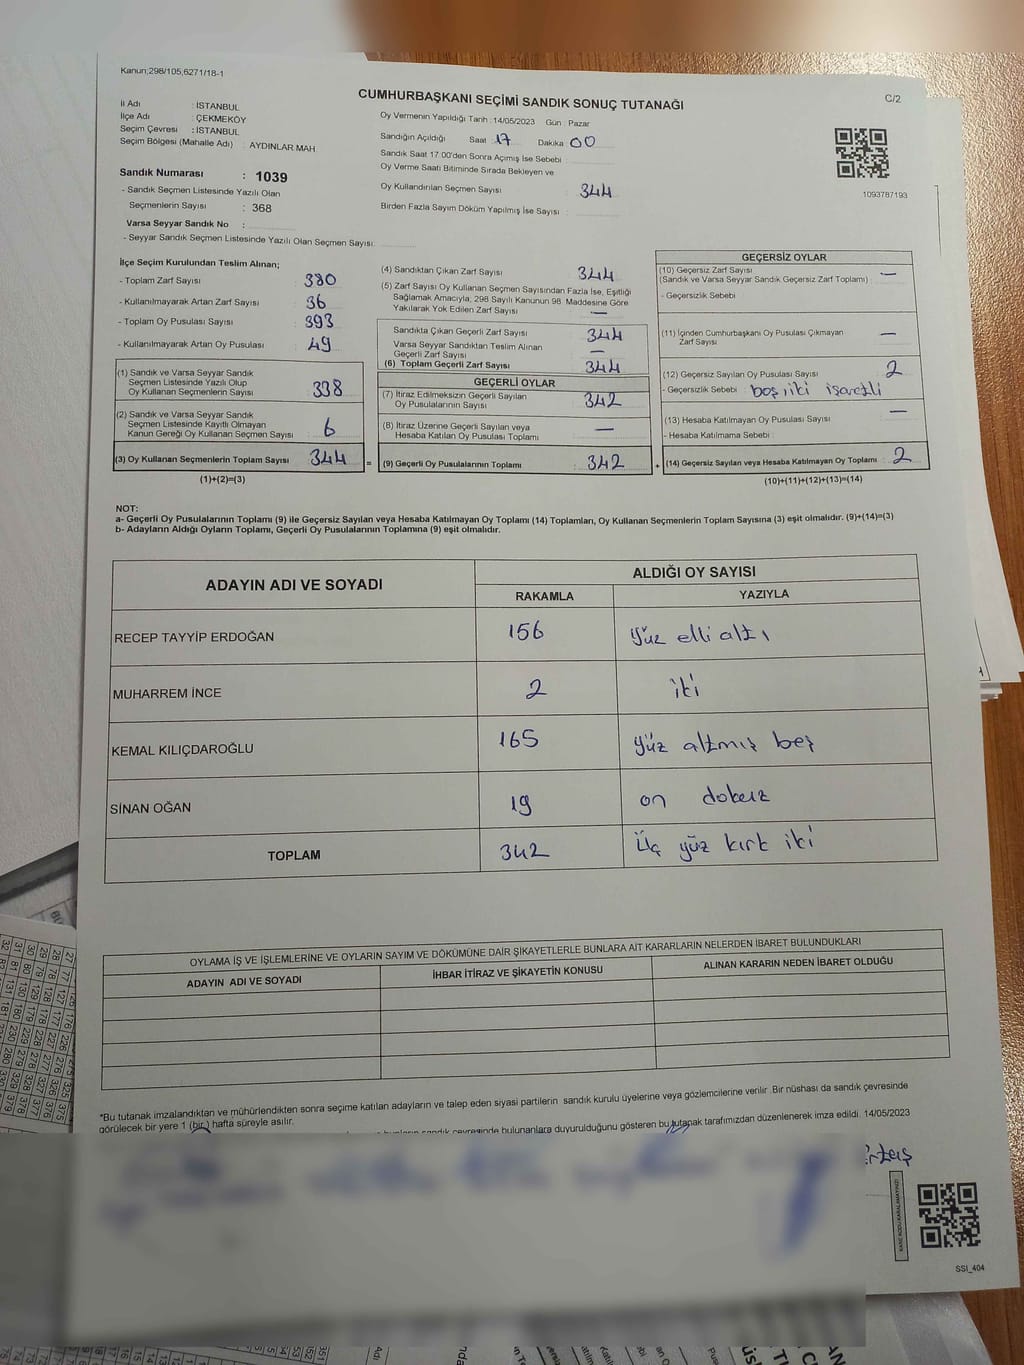 Kanun;298/105;6271/18-1
C/2
CUMHURBAŞKANI SEÇİMİ SANDIK SONUÇ TUTANAĞI
İl Adı : İSTANBUL
İlçe Adı : ÇEKMEKÖY
Seçim Çevresi : İSTANBUL
Seçim Bölgesi (Mahalle Adı) : AYDINLAR MAH.
Sandık Numarası : 1039
- Sandık Seçmen Listesinde Yazılı Olan
Seçmenlerin Sayısı : 368
Varsa Seyyar Sandık No :
- Seyyar Sandık Seçmen Listesinde Yazılı Olan Seçmen Sayısı:
Oy Vermenin Yapıldığı Tarih : 14/05/2023 Gün : Pazar
Sandığın Açıldığı Saat : 17 Dakika : 00
Sandık Saat 17.00'den Sonra Açımış İse Sebebi :
Oy Verme Saati Bitiminde Sırada Bekleyen ve
Oy Kullandırılan Seçmen Sayısı : 344
Birden Fazla Sayım Döküm Yapılmış İse Sayısı :
1093787193
İlçe Seçim Kurulundan Teslim Alınan;
- Toplam Zarf Sayısı : 380
- Kullanılmayarak Artan Zarf Sayısı : 36
- Toplam Oy Pusulası Sayısı : 393
- Kullanılmayarak Artan Oy Pusulası : 49
(1) Sandık ve Varsa Seyyar Sandık
Seçmen Listesinde Yazılı Olup
Oy Kullanan Seçmenlerin Sayısı : 338
(2) Sandık ve Varsa Seyyar Sandık
Seçmen Listesinde Kayıtlı Olmayan
Kanun Gereği Oy Kullanan Seçmen Sayısı : 6
(3) Oy Kullanan Seçmenlerin Toplam Sayısı : 344
(1)+(2)=(3)
(4) Sandıktan Çıkan Zarf Sayısı : 344
(5) Zarf Sayısı Oy Kullanan Seçmen Sayısından Fazla İse, Eşitliği
Sağlamak Amacıyla; 298 Sayılı Kanunun 98. Maddesine Göre
Yakılarak Yok Edilen Zarf Sayısı : —
Sandıkta Çıkan Geçerli Zarf Sayısı : 344
Varsa Seyyar Sandıktan Teslim Alınan
Geçerli Zarf Sayısı : —
(6) Toplam Geçerli Zarf Sayısı : 344
GEÇERLİ OYLAR
(7) İtiraz Edilmeksizin Geçerli Sayılan
Oy Pusulalarının Sayısı : 342
(8) İtiraz Üzerine Geçerli Sayılan veya
Hesaba Katılan Oy Pusulası Toplamı : —
= (9) Geçerli Oy Pusulalarının Toplamı : 342
GEÇERSİZ OYLAR
(10) Geçersiz Zarf Sayısı : —
(Sandık ve Varsa Seyyar Sandık Geçersiz Zarf Toplamı)
- Geçersizlik Sebebi
(11) İçinden Cumhurbaşkanı Oy Pusulası Çıkmayan : —
Zarf Sayısı
(12) Geçersiz Sayılan Oy Pusulası Sayısı : 2
- Geçersizlik Sebebi : boş, iki işaretli
(13) Hesaba Katılmayan Oy Pusulası Sayısı : —
- Hesaba Katılmama Sebebi :
+ (14) Geçersiz Sayılan veya Hesaba Katılmayan Oy Toplamı : 2
(10)+(11)+(12)+(13)=(14)
NOT:
a- Geçerli Oy Pusulalarının Toplamı (9) ile Geçersiz Sayılan veya Hesaba Katılmayan Oy Toplamı (14) Toplamları, Oy Kullanan Seçmenlerin Toplam Sayısına (3) eşit olmalıdır. (9)+(14)=(3)
b- Adayların Aldığı Oyların Toplamı, Geçerli Oy Pusulalarının Toplamına (9) eşit olmalıdır.
ADAYIN ADI VE SOYADI ALDIĞI OY SAYISI
RAKAMLA YAZIYLA
RECEP TAYYİP ERDOĞAN 156 Yüz elli altı
MUHARREM İNCE 2 iki
KEMAL KILIÇDAROĞLU 165 yüz altmış beş
SİNAN OĞAN 19 on dokuz
TOPLAM 342 Üç yüz kırk iki
OYLAMA İŞ VE İŞLEMLERİNE VE OYLARIN SAYIM VE DÖKÜMÜNE DAİR ŞİKAYETLERLE BUNLARA AİT KARARLARIN NELERDEN İBARET BULUNDUKLARI
ADAYIN ADI VE SOYADI İHBAR İTİRAZ VE ŞİKAYETİN KONUSU ALINAN KARARIN NEDEN İBARET OLDUĞU
*Bu tutanak imzalandıktan ve mühürlendikten sonra seçime katılan adayların ve talep eden siyasi partilerin sandık kurulu üyelerine veya gözlemcilerine verilir .Bir nüshası da sandık çevresinde
görülecek bir yere 1 (bir) hafta süreyle asılır.
sandık çevresinde bulunanlara duyurulduğunu gösteren bu tutanak tarafımızdan düzenlenerek imza edildi. 14/05/2023
SSI_404